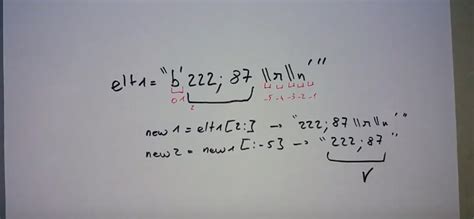 elt1 = "b'222; 87 \\r\\n'"
0 1 2 -5 -4 -3 -2 -1
new1 = elt1[2:] → "222; 87\\r\\n'"
new2 = new1[:-5] → "222; 87"